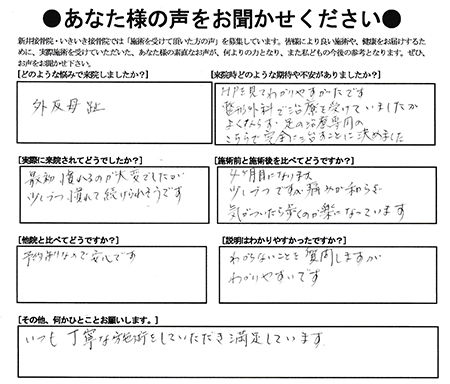 ●あなた様の声をお聞かせください●
新井接骨院・いきいき接骨院では「施術を受けて頂いた方の声」を募集しています。皆様により良い施術や、健康をお届けするため
に、実際施術を受けていただいた、あなた様の素直なお声が、何よりの力となり、また私どもの今後の参考となります。ぜひ、
お声をお聞かせ下さい。
[どのような悩みで来院しましたか?]
外反母趾
[来院時どのような期待や不安がありましたか?]
HP見てわかりやすかったです
整形外科で治療を受けていましたが
よくならず、足の治療専門の
こちらで完全に治すことに決めました
[実際に来院されてどうでしたか?]
最初慣れるのが大変でしたが
少しづつ慣れて続けられそうです
[施術前と施術後を比べてどうですか?]
4ヶ月目になります
少しづつですが痛みが和らぎ
気がついたら歩くのが楽になっています
[他院と比べてどうですか?]
予約制なので安心です
[説明はわかりやすかったですか?]
わからないことを質問しますが
わかりやすいです
[その他、何かひとことお願いします。]
いつも丁寧な施術をしていただき満足しています